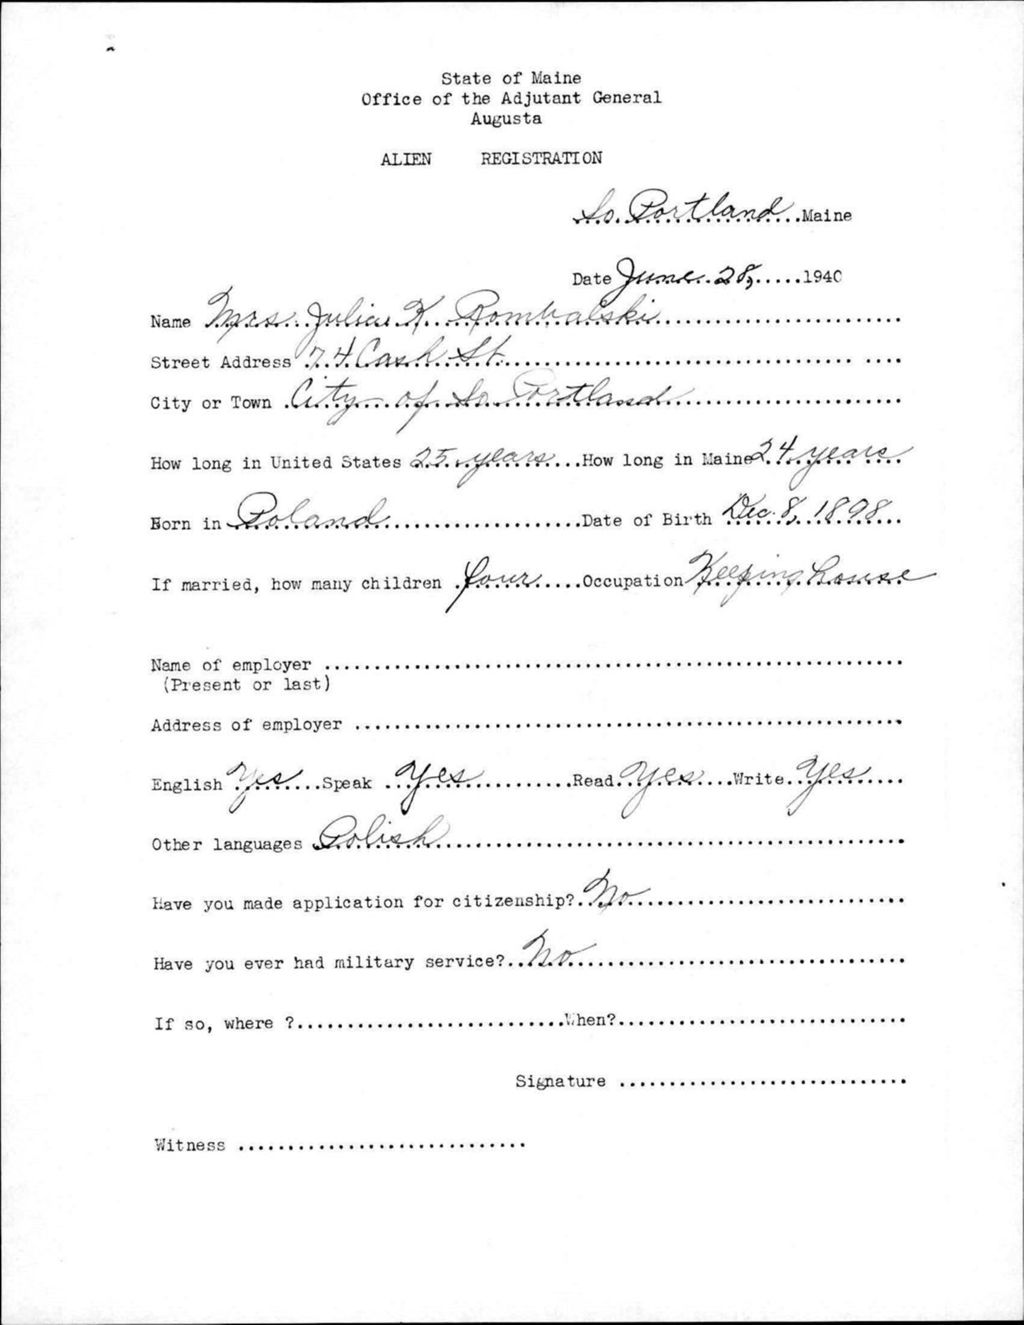 State of Maine
Office of the Adjutant General
Augusta
ALIEN REGISTRATION
So. Portland Maine
Date June 28, 1940
Name Mrs. Julia K. Rombalski
Street Address 74 Cash St.
City or Town City of So. Portland
How long in United States 25 years How long in Maine 24 years
Born in Poland Date of Birth Dec. 8, 1898
If married, how many children four Occupation Keeping house
Name of employer
(Present or last)
Address of employer
English Yes Speak Yes Read Yes Write Yes
Other languages Polish
Have you made application for citizenship? No
Have you ever had military service? No
If so, where ? When?
Signature
Witness